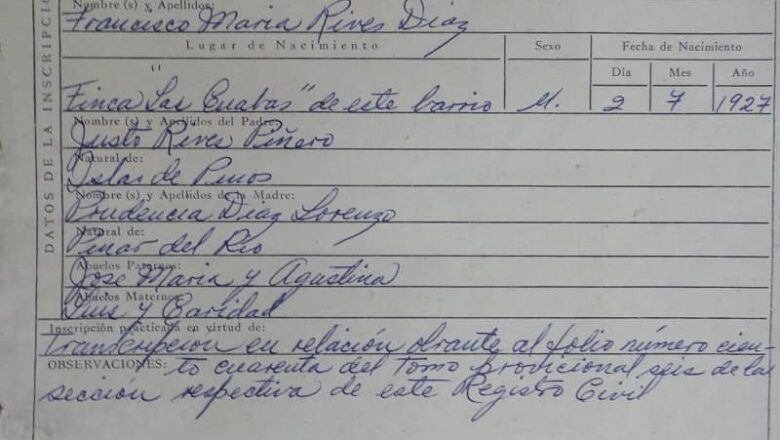 Nombre (s) y Apellidos:
Francisco Maria Rives Diaz
Lugar de Nacimiento
Sexo
Fecha de Nacimiento
Día
Mes
Año
Finca "Las Cuabas" de este barrio
M.
2
7
1927
Nombre (s) y Apellidos del Padre:
Justo Rives Piñero
Natural de:
Isla de Pinos
Nombre (s) y Apellidos de la Madre:
Prudencia Diaz Lorenzo
Natural de:
Pinar del Rio
Abuelos Paternos:
Jose Maria y Agustina
Abuelos Maternos:
Luis y Caridad
Inscripción practicada en virtud de:
Transcripcion en relación obrante al folio número cien-
OBSERVACIONES: to cuarenta del Tomo provicional seis de la
sección respectiva de este Registro Civil
DATOS DE LA INSCRIPCIO